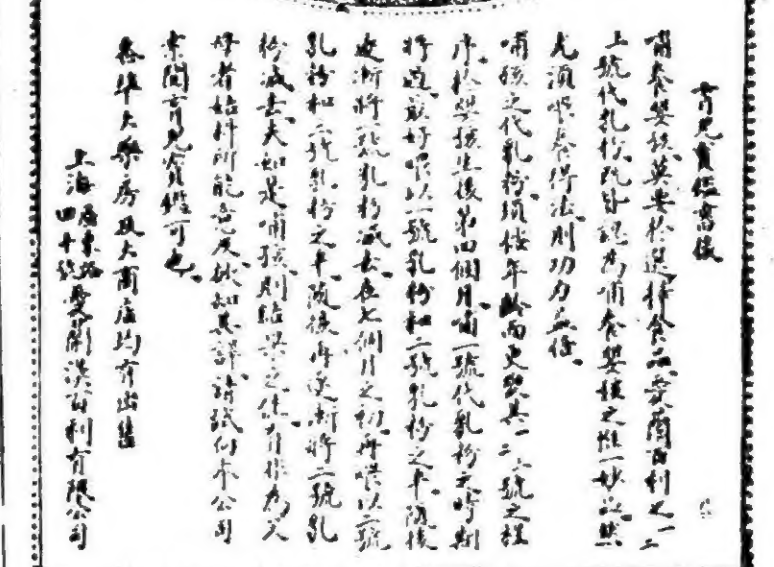 育兒寶鑑書後
哺養嬰孩莫要於選擇食品愛蘭百利之一二
三號代乳粉既皆認為哺養嬰孩之惟一妙品然
尤須喂養得法則功力益倍
哺孩之代乳粉須按年齡而更換其一二三號之程
序於嬰孩生後第四個月哺一號代乳粉之時期
將過最好喂以一號乳粉和二號乳粉之半隨後
逐漸將一號乳粉減去在七個月之初再喂以二號
乳粉和三號乳粉之半隨後再逐漸將二號乳
粉減去夫如是哺孩則結果之佳有非為父
母者始料所能意及欲知其詳請試向本公司
索閱育兒寶鑑可也
各埠大藥房及大商店均有出售
上海 四十號 愛蘭漢百利有限公司